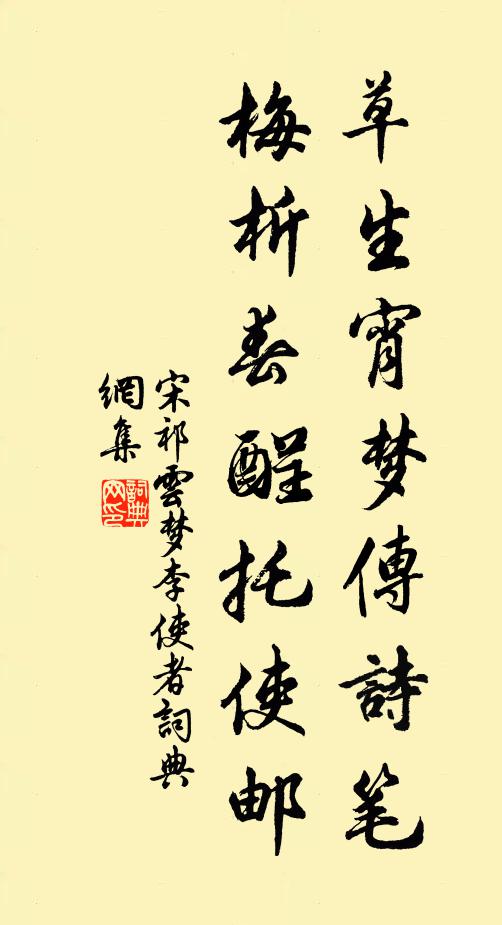 草生宵梦傳詩笔
梅析春酲托使邮
宋祁雲梦李使者詞典
網集
詞典网印